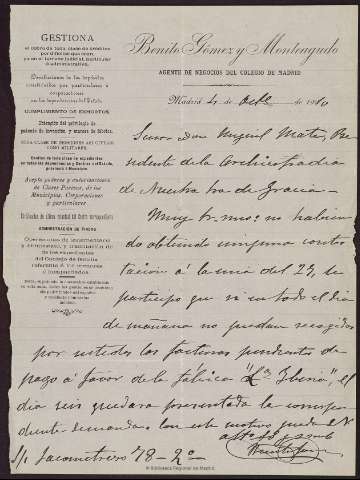 GESTIONA
el cobro de toda clase de créditos
por difíciles que sean,
ya en el terreno judicial, particular
ó administrativo.
Devoluciones de los depósitos
constituidos por particulares ó
corporaciones
en las dependencias del Estado.
CUMPLIMIENTO DE EXHORTOS
Obtención del privilegio de
patente de invención y marcas de fábrica.
TODA CLASE DE PENSIONES ASÍ CIVILES
COMO MILITARES.
Acepta poderes y autorizaciones
de Clases Pasivas, de los
Municipios, Corporaciones
y particulares
ADMINISTRACIÓN DE FINCAS
Benito Gómez y Monteagudo
AGENTE DE NEGOCIOS DEL COLEGIO DE MADRID
Madrid 4 de Octe de 1910
Señor Don Miguel Mateo Pre
sidente de la Archicofradia
de Nuestra Sra de Gracia
Muy Sr. mio: no habien
do obtenido ninguna contes
tación á la mia del 29, le
participo que si en todo el dia
de mañana no quedan recogidas
por ustedes las facturas pendientes de
pago á favor de la fábrica "La Iberia", el
dia seis quedará presentada la corresp
diente demanda. Con este motivo queda de V.
atto. s.s. q b s m
S/c Jacometrezo 78-2º
Biblioteca Regional de Madrid